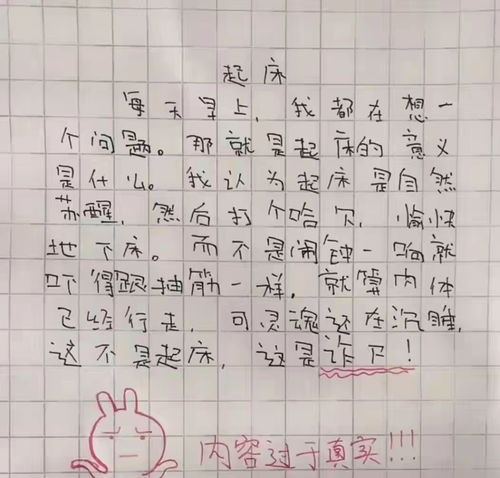 起床
每天早上,我都在想一
个问题。那就是起床的意义
是什么。我认为起床是自然
苏醒,然后打个哈欠,愉快
地下床。而不是闹钟一响就
吓得跟抽筋一样,就算肉体
已经行走,可灵魂还在沉睡,
这不是起床,这是诈尸!
内容过于真实!!!